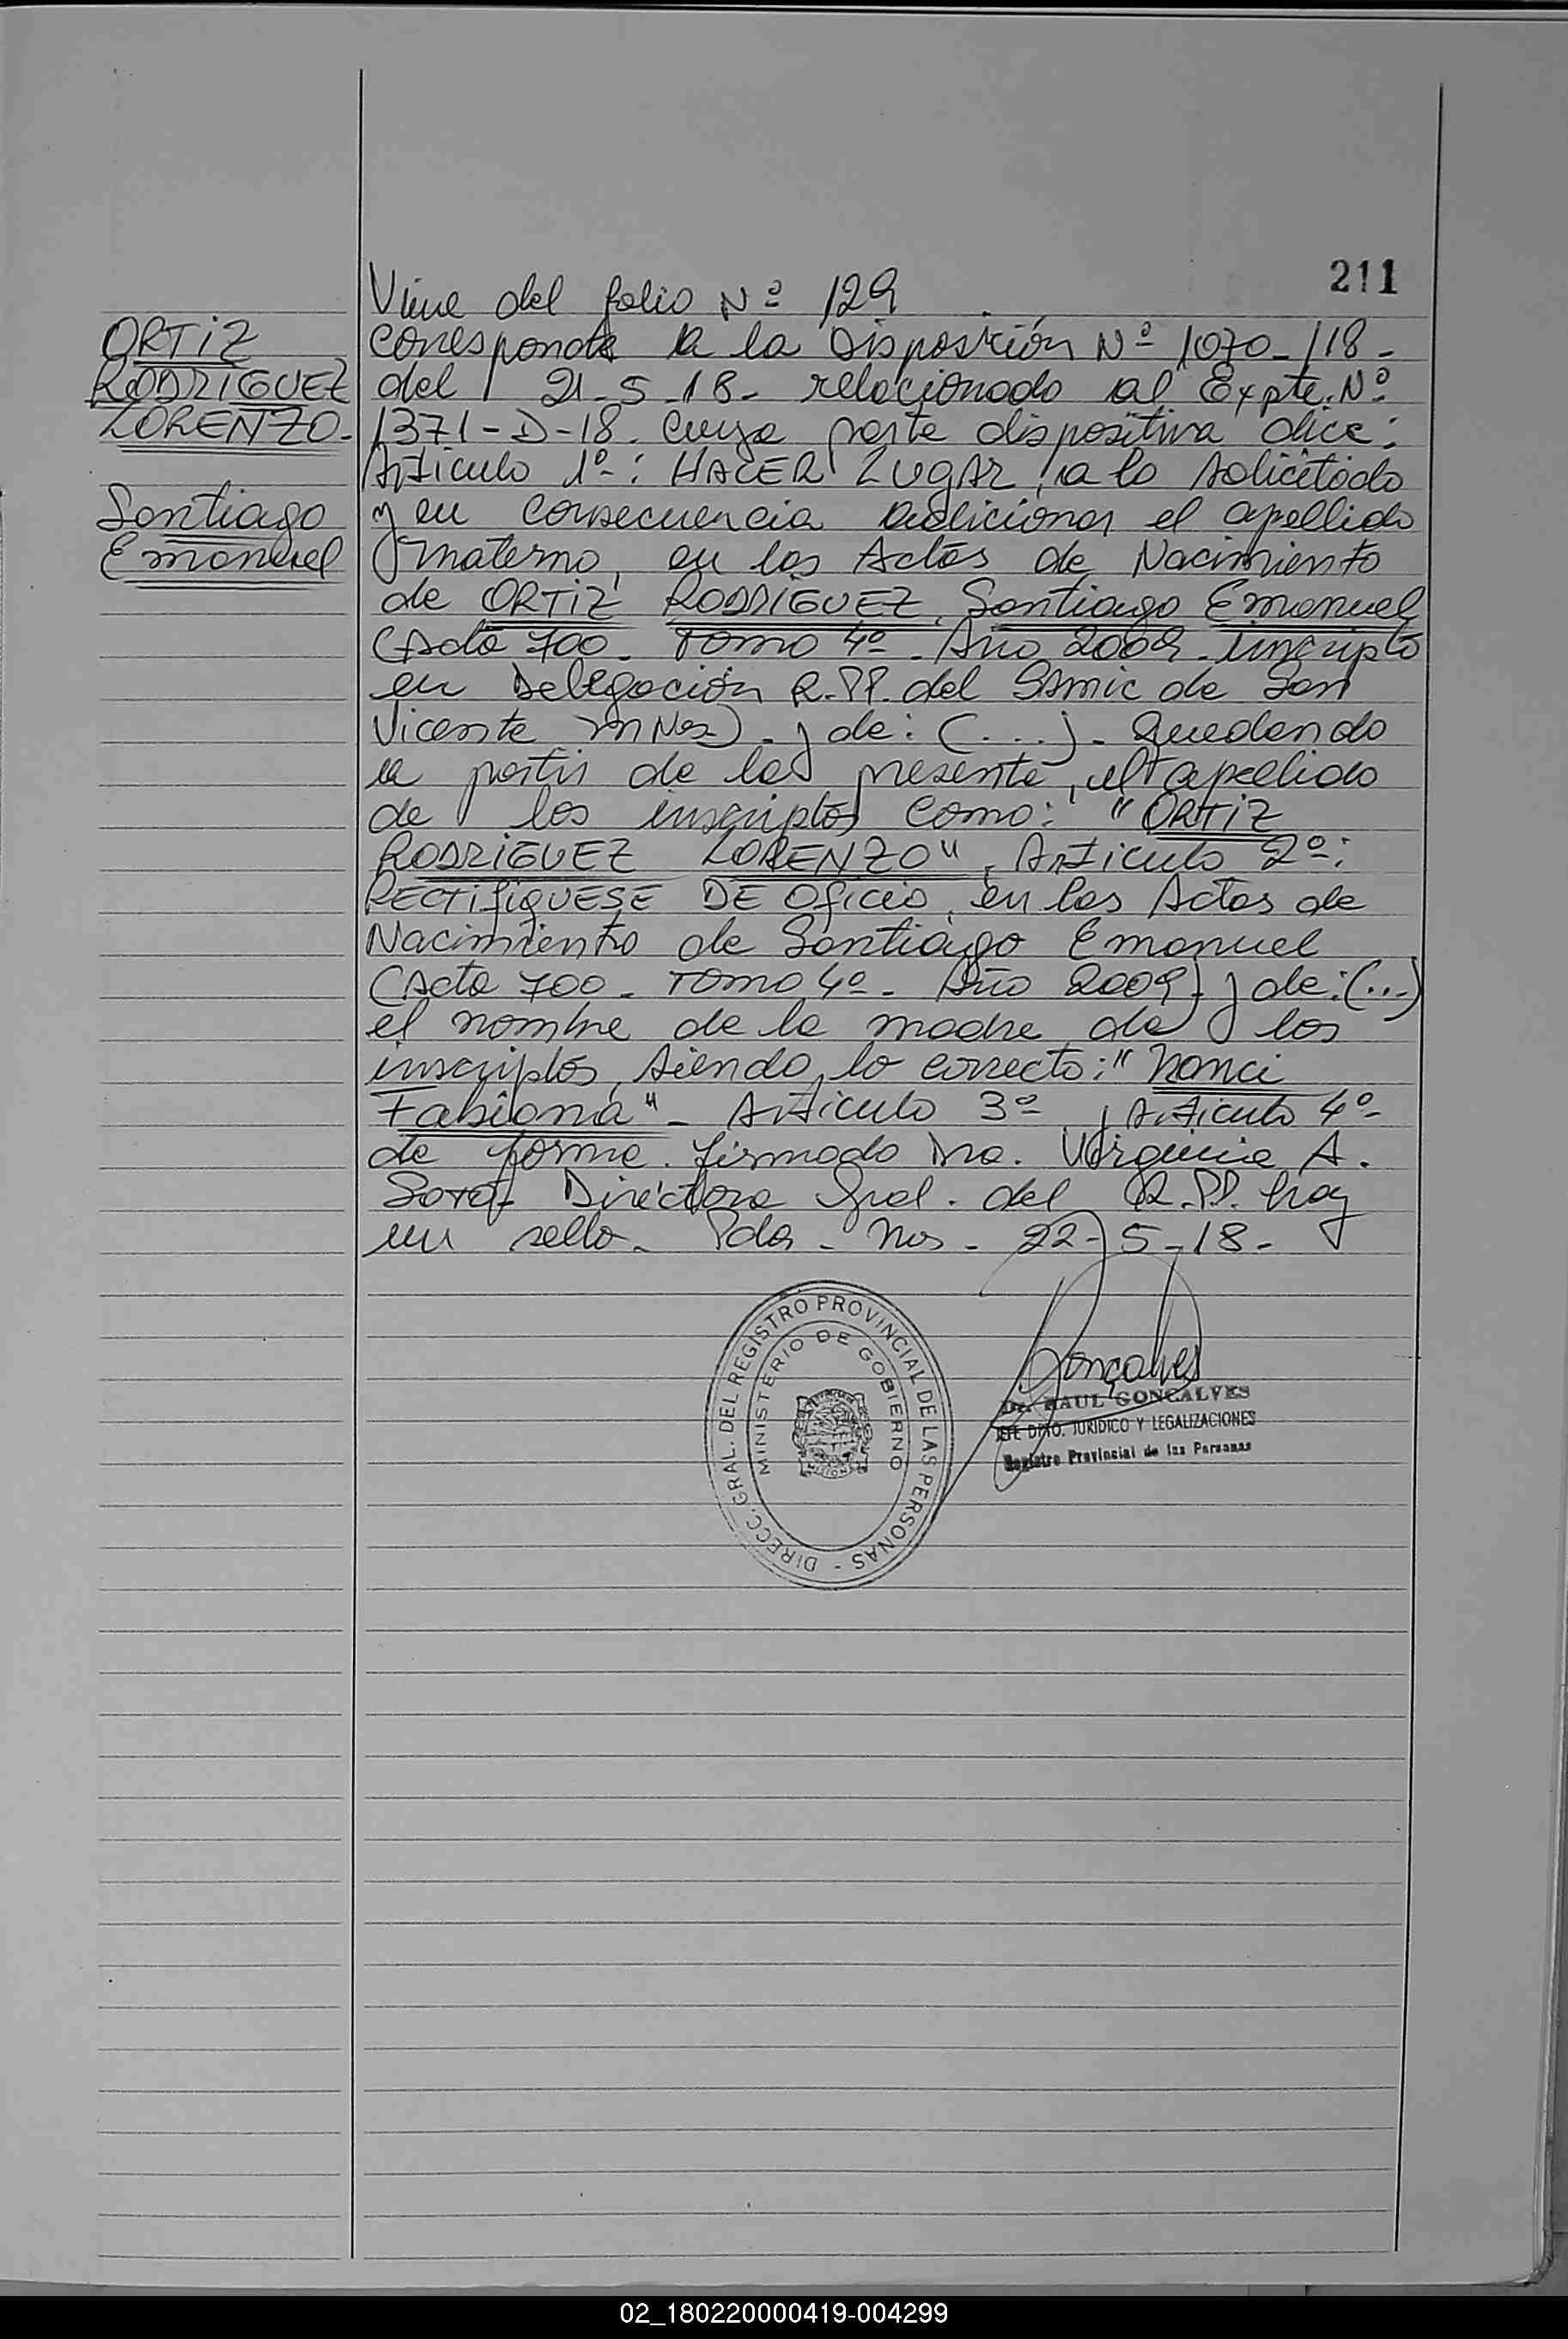 211
Viene del folio Nº 129
ORTIZ
RODRIGUEZ
LORENZO.
Santiago
Emanuel
corresponde a la Disposición Nº 1070-/18-
del 21-5-18- relacionado al Expte. Nº
1371-D-18. Cuya parte dispositiva dice:
Artículo 1º: HACER LUGAR, a lo solicitado
y en consecuencia adicionar el apellido
materno, en las Actas de Nacimiento
de ORTIZ RODRIGUEZ, Santiago Emanuel
(Acta 700. Tomo 4º. Año 2009. inscripto
en Delegación R.PP. del Samic de San
Vicente Mnes). y de: (....). Quedando
a partir de la presente, el apellido
de los inscriptos como: "ORTIZ
RODRIGUEZ LORENZO". Artículo 2º:
RECTIFIQUESE DE Oficio, en las Actas de
Nacimiento de Santiago Emanuel
(Acta 700. Tomo 4º. Año 2009) y de: (...)
el nombre de la madre de los
inscriptos, siendo lo correcto: "Nanci
Fabiana". Artículo 3º y Artículo 4º-
de forma. firmado Dra. Virginia A.
Directora Gral. del R.PP. hay
un sello. Pdas. Mns. 22-5-18-
DIRECC. GRAL. DEL REGISTRO PROVINCIAL DE LAS PERSONAS -
MINISTERIO DE GOBIERNO
MISIONES
Gonçalves
Dr. RAUL GONCALVES
JEFE DPTO. JURIDICO Y LEGALIZACIONES
Registro Provincial de las Personas
02_180220000419-004299